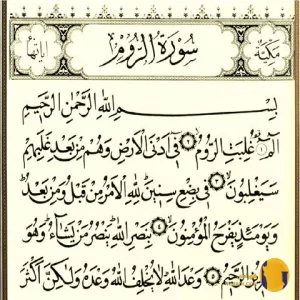 مكية
سورة الروم
آياتها
بِسْمِ اللَّهِ الرَّحْمَٰنِ الرَّحِيمِ
الٓمٓ ۝ غُلِبَتِ الرُّومُ ۝ فِي أَدْنَى الْأَرْضِ وَهُم مِّن بَعْدِ غَلَبِهِمْ
سَيَغْلِبُونَ ۝ فِي بِضْعِ سِنِينَ لِلَّهِ الْأَمْرُ مِن قَبْلُ وَمِن بَعْدُ
وَيَوْمَئِذٍ يَفْرَحُ الْمُؤْمِنُونَ ۝ بِنَصْرِ اللَّهِ يَنصُرُ مَن يَشَاءُ وَهُوَ
الرَّحِيمُ ۝ وَعْدَ اللَّهِ لَا يُخْلِفُ اللَّهُ وَعْدَهُ وَلَٰكِنَّ أَكْثَرَ